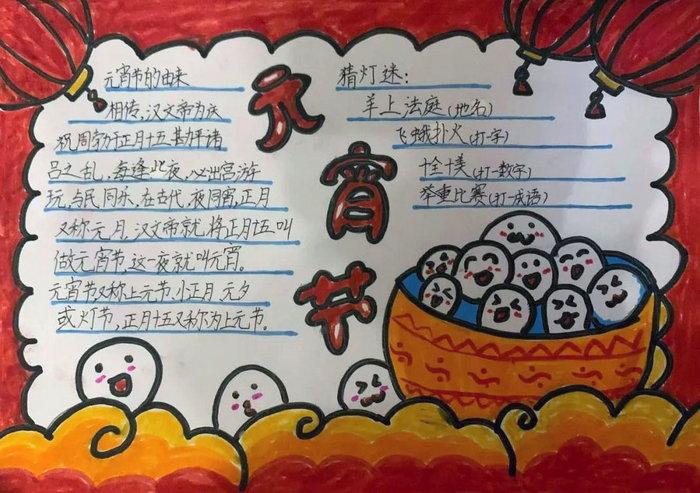 元宵节的由来
相传,汉文帝为庆
祝周勃于正月十五勘平诸
吕之乱,每逢此夜,必出宫游
玩,与民同乐,在古代,夜同宵,正月
又称元月,汉文帝就将正月十五叫
做元宵节,这一夜就叫元宵。
元宵节又称上元节,小正月,元夕
或灯节,正月十五又称为上元节.
元宵节
精灯迷:
羊上法庭(地名)
飞蛾扑火(打字)
十全十美(打一数字)
举重比赛(打一成语)